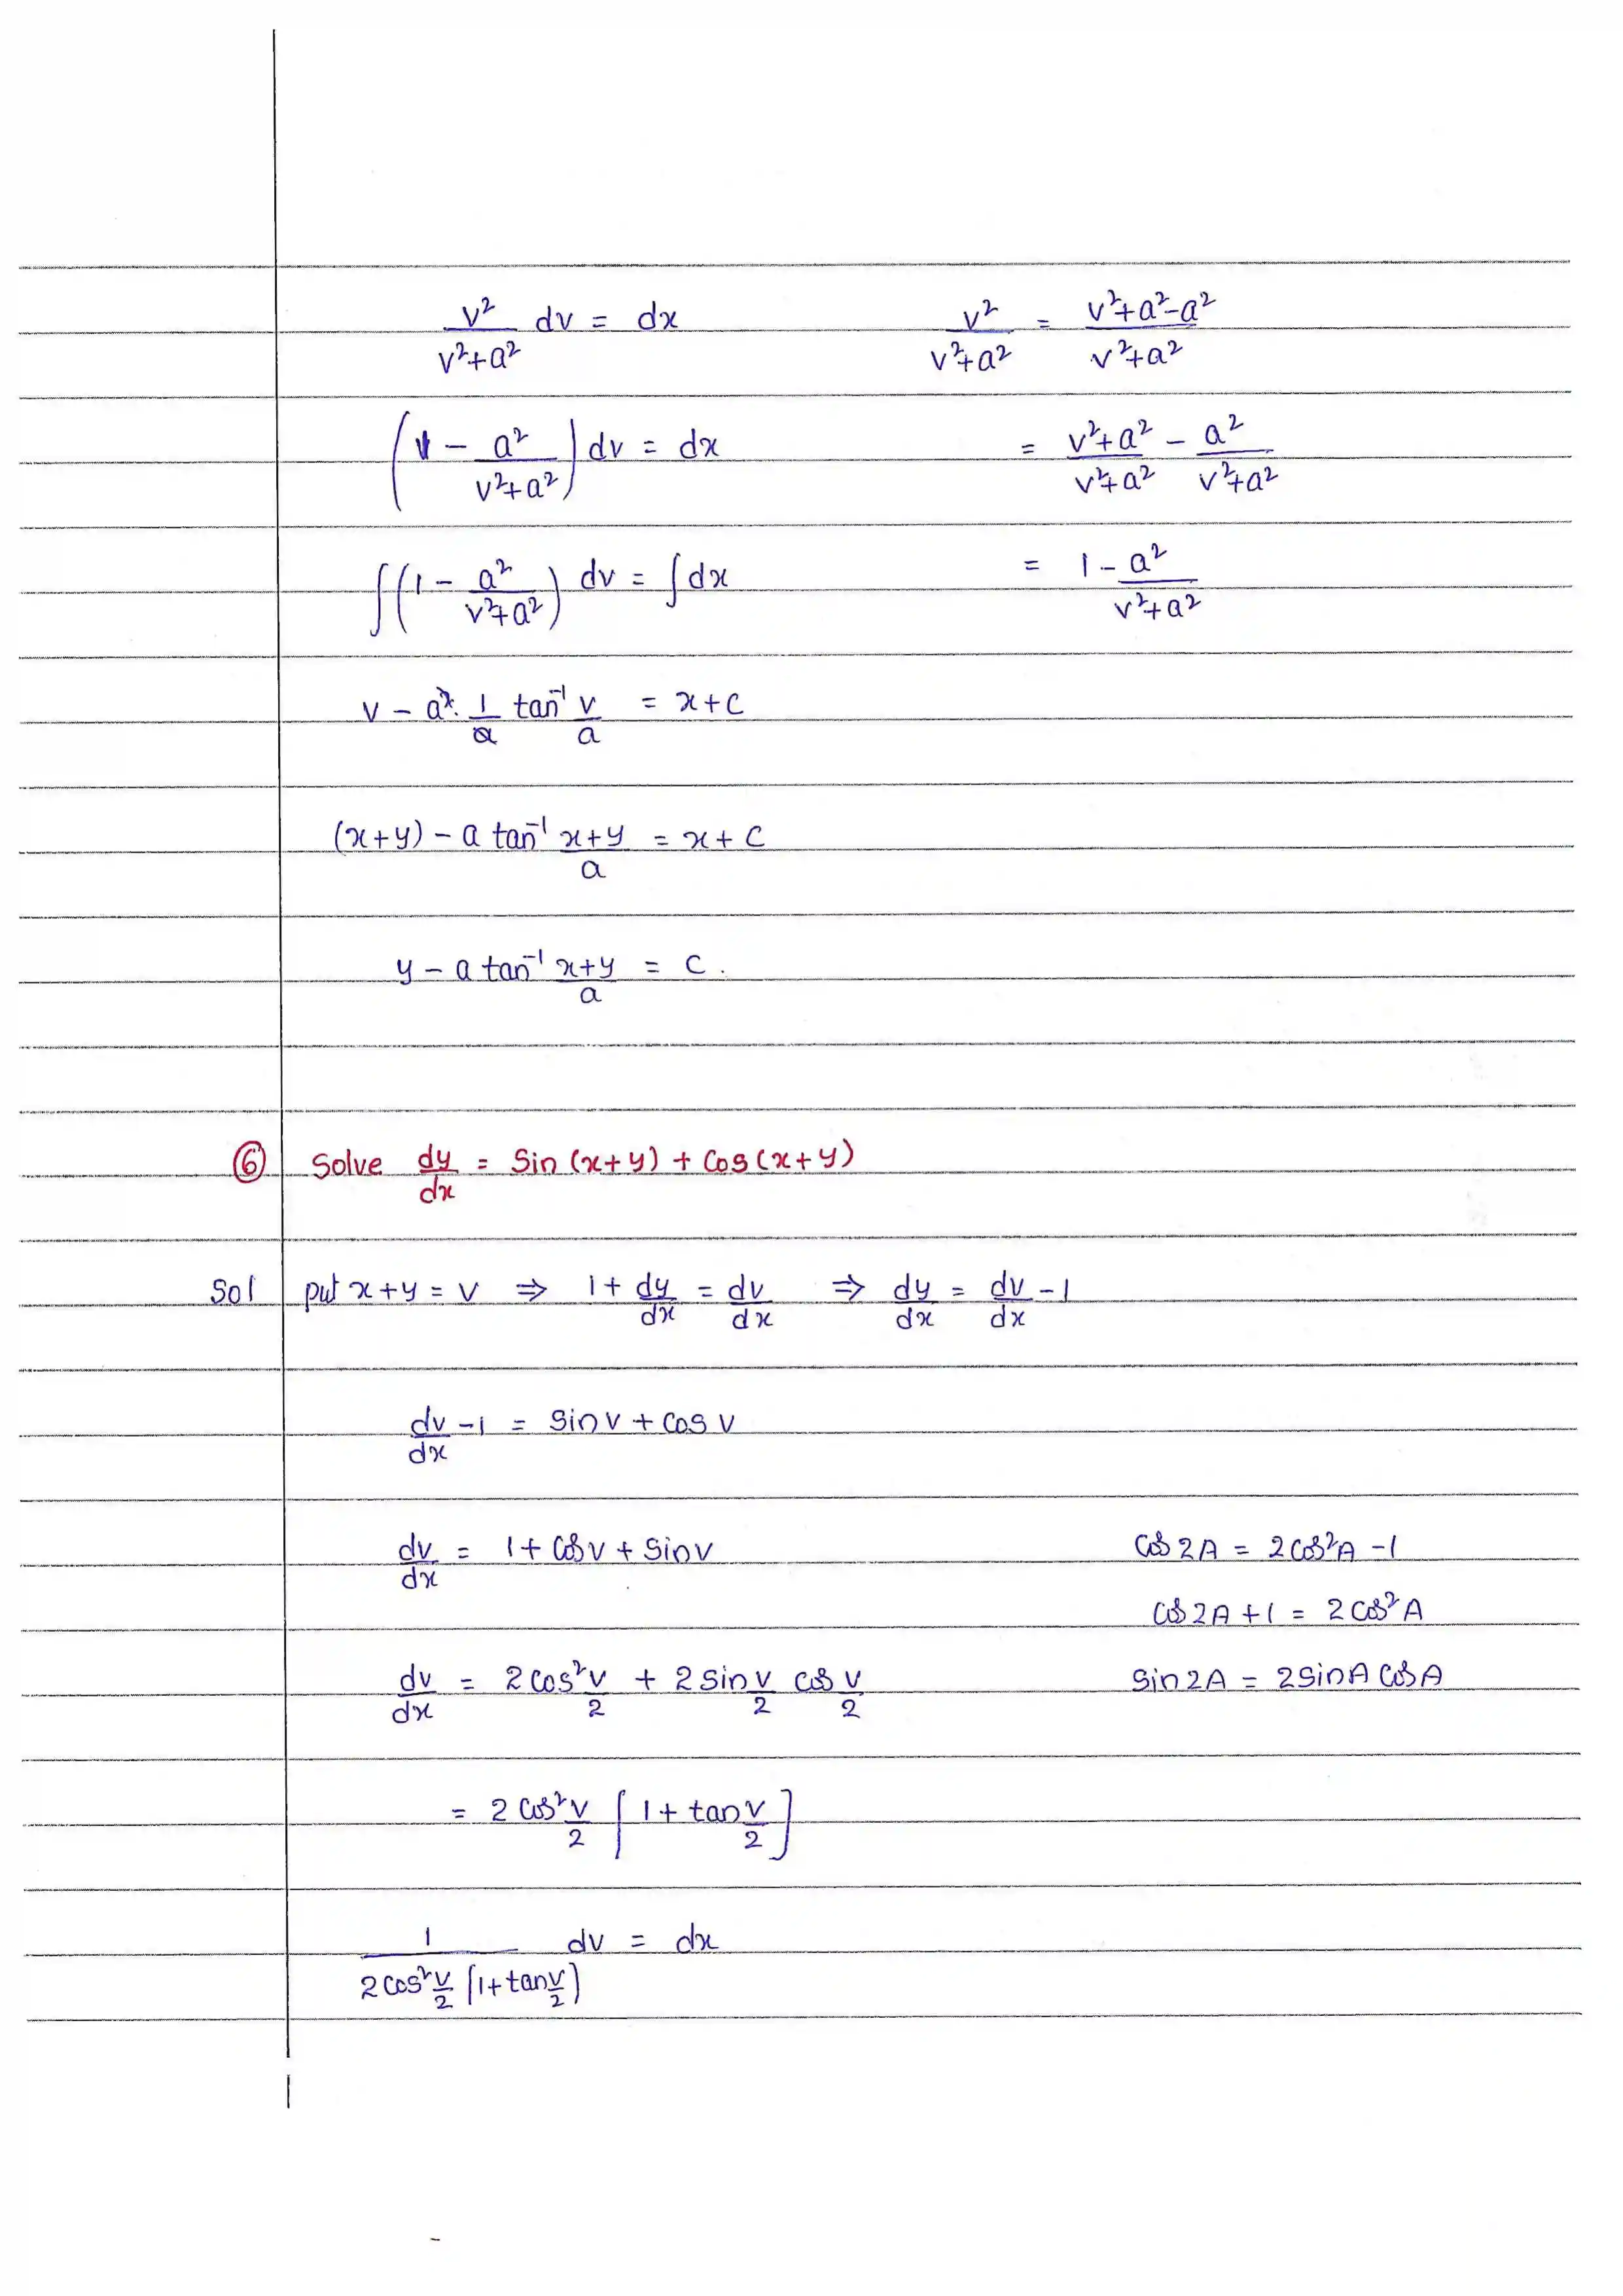 v²/(v²+a²) dv = dx    v²/(v²+a²) = (v²+a²-a²)/(v²+a²)
(1 - a²/(v²+a²)) dv = dx    = (v²+a²)/(v²+a²) - a²/(v²+a²)
∫(1 - a²/(v²+a²)) dv = ∫dx    = 1 - a²/(v²+a²)
v - a². 1/a tan⁻¹ v/a = x+c
(x+y) - a tan⁻¹ (x+y)/a = x+c
y - a tan⁻¹ (x+y)/a = c.
⑥ Solve dy/dx = Sin(x+y) + Cos(x+y)
Sol put x+y = v ⇒ 1+ dy/dx = dv/dx ⇒ dy/dx = dv/dx - 1
dv/dx - 1 = Sin v + Cos v
dv/dx = 1+ Cos v + Sin v    Cos 2A = 2Cos²A - 1
Cos 2A + 1 = 2 Cos² A
dv/dx = 2 Cos² v/2 + 2 Sin v/2 Cos v/2    Sin 2A = 2 Sin A Cos A
= 2 Cos² v/2 [1+ tan v/2]
1/(2 Cos² v/2 [1+ tan v/2]) dv = dx